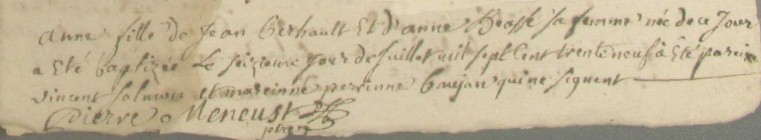 anne fille de Jean Berhault Et d'anne hasse sa femme née de ce Jour
a Eté baptizée Le seizieme jour de juillet mil sept Cent trente neuf a Eté parein
vincent et mareinne perrinne qui ne signent
Pierre Meneust
ptre